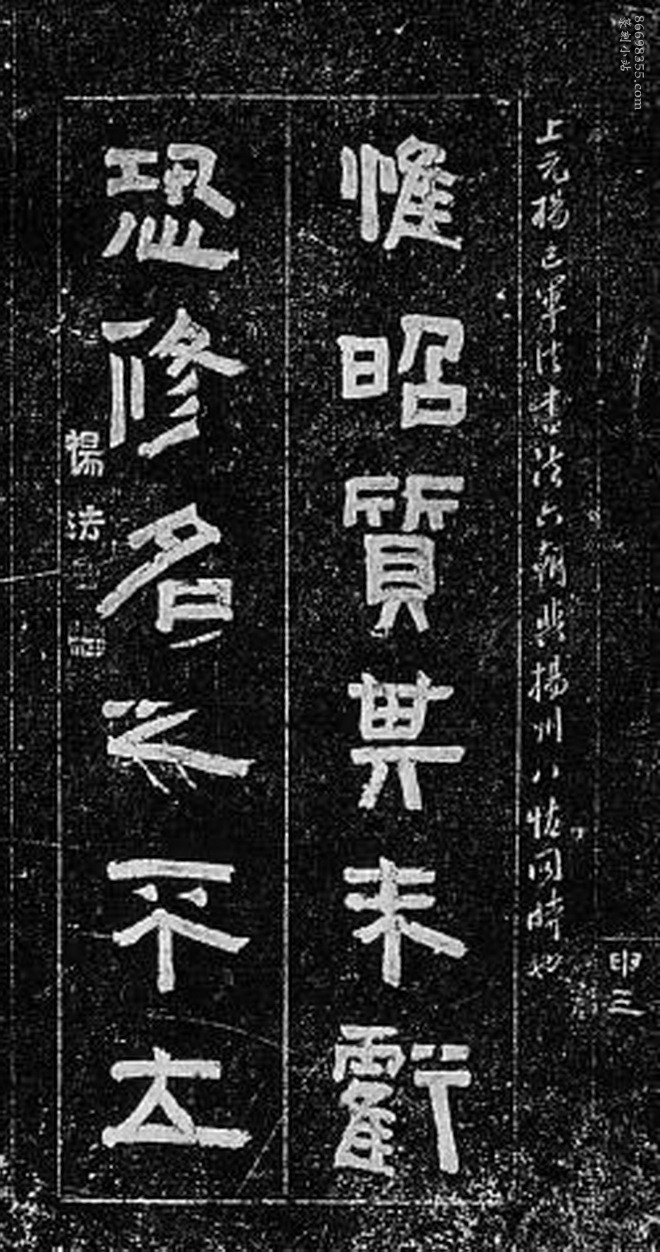 86698355.com
篆刻小站
申三
上元楊已軍法書法六朝與揚州八怪同時也
惟昭質其未虧
恐修名之不立
楊法